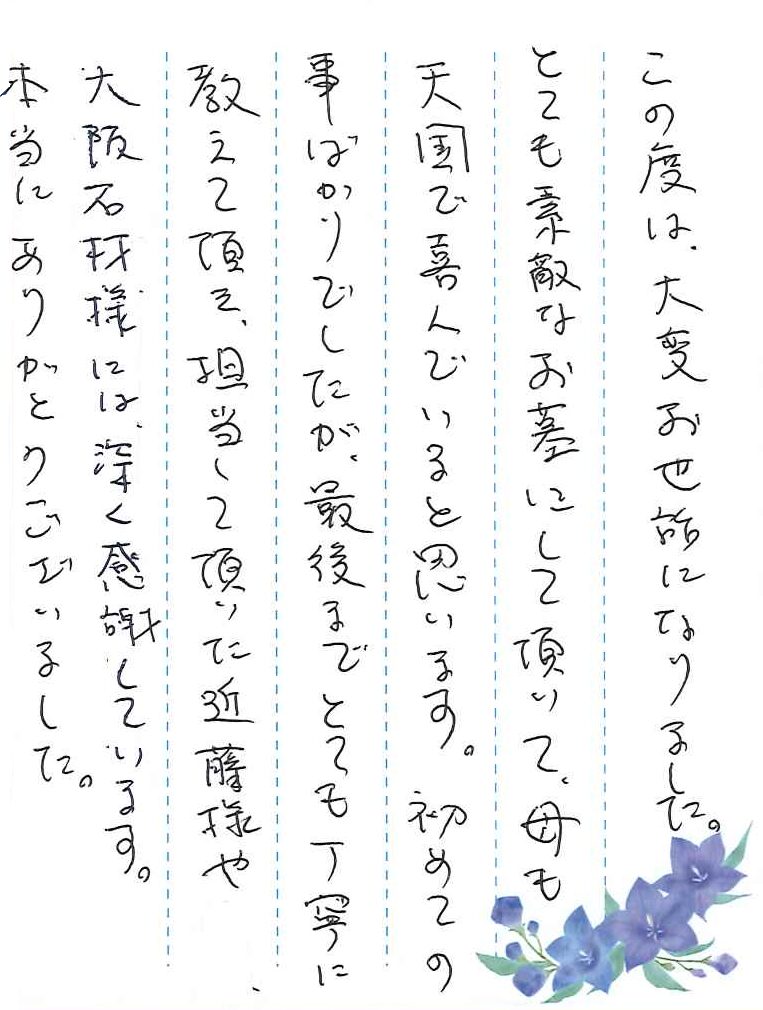 この度は、大変お世話になりました。
とても素敵なお墓にして頂いて、母も
天国で喜んでいると思います。初めての
事ばかりでしたが、最後までとても丁寧に
教えて頂き、担当して頂いた近藤様や
大阪石材様には、深く感謝しています。
本当にありがとうございました。